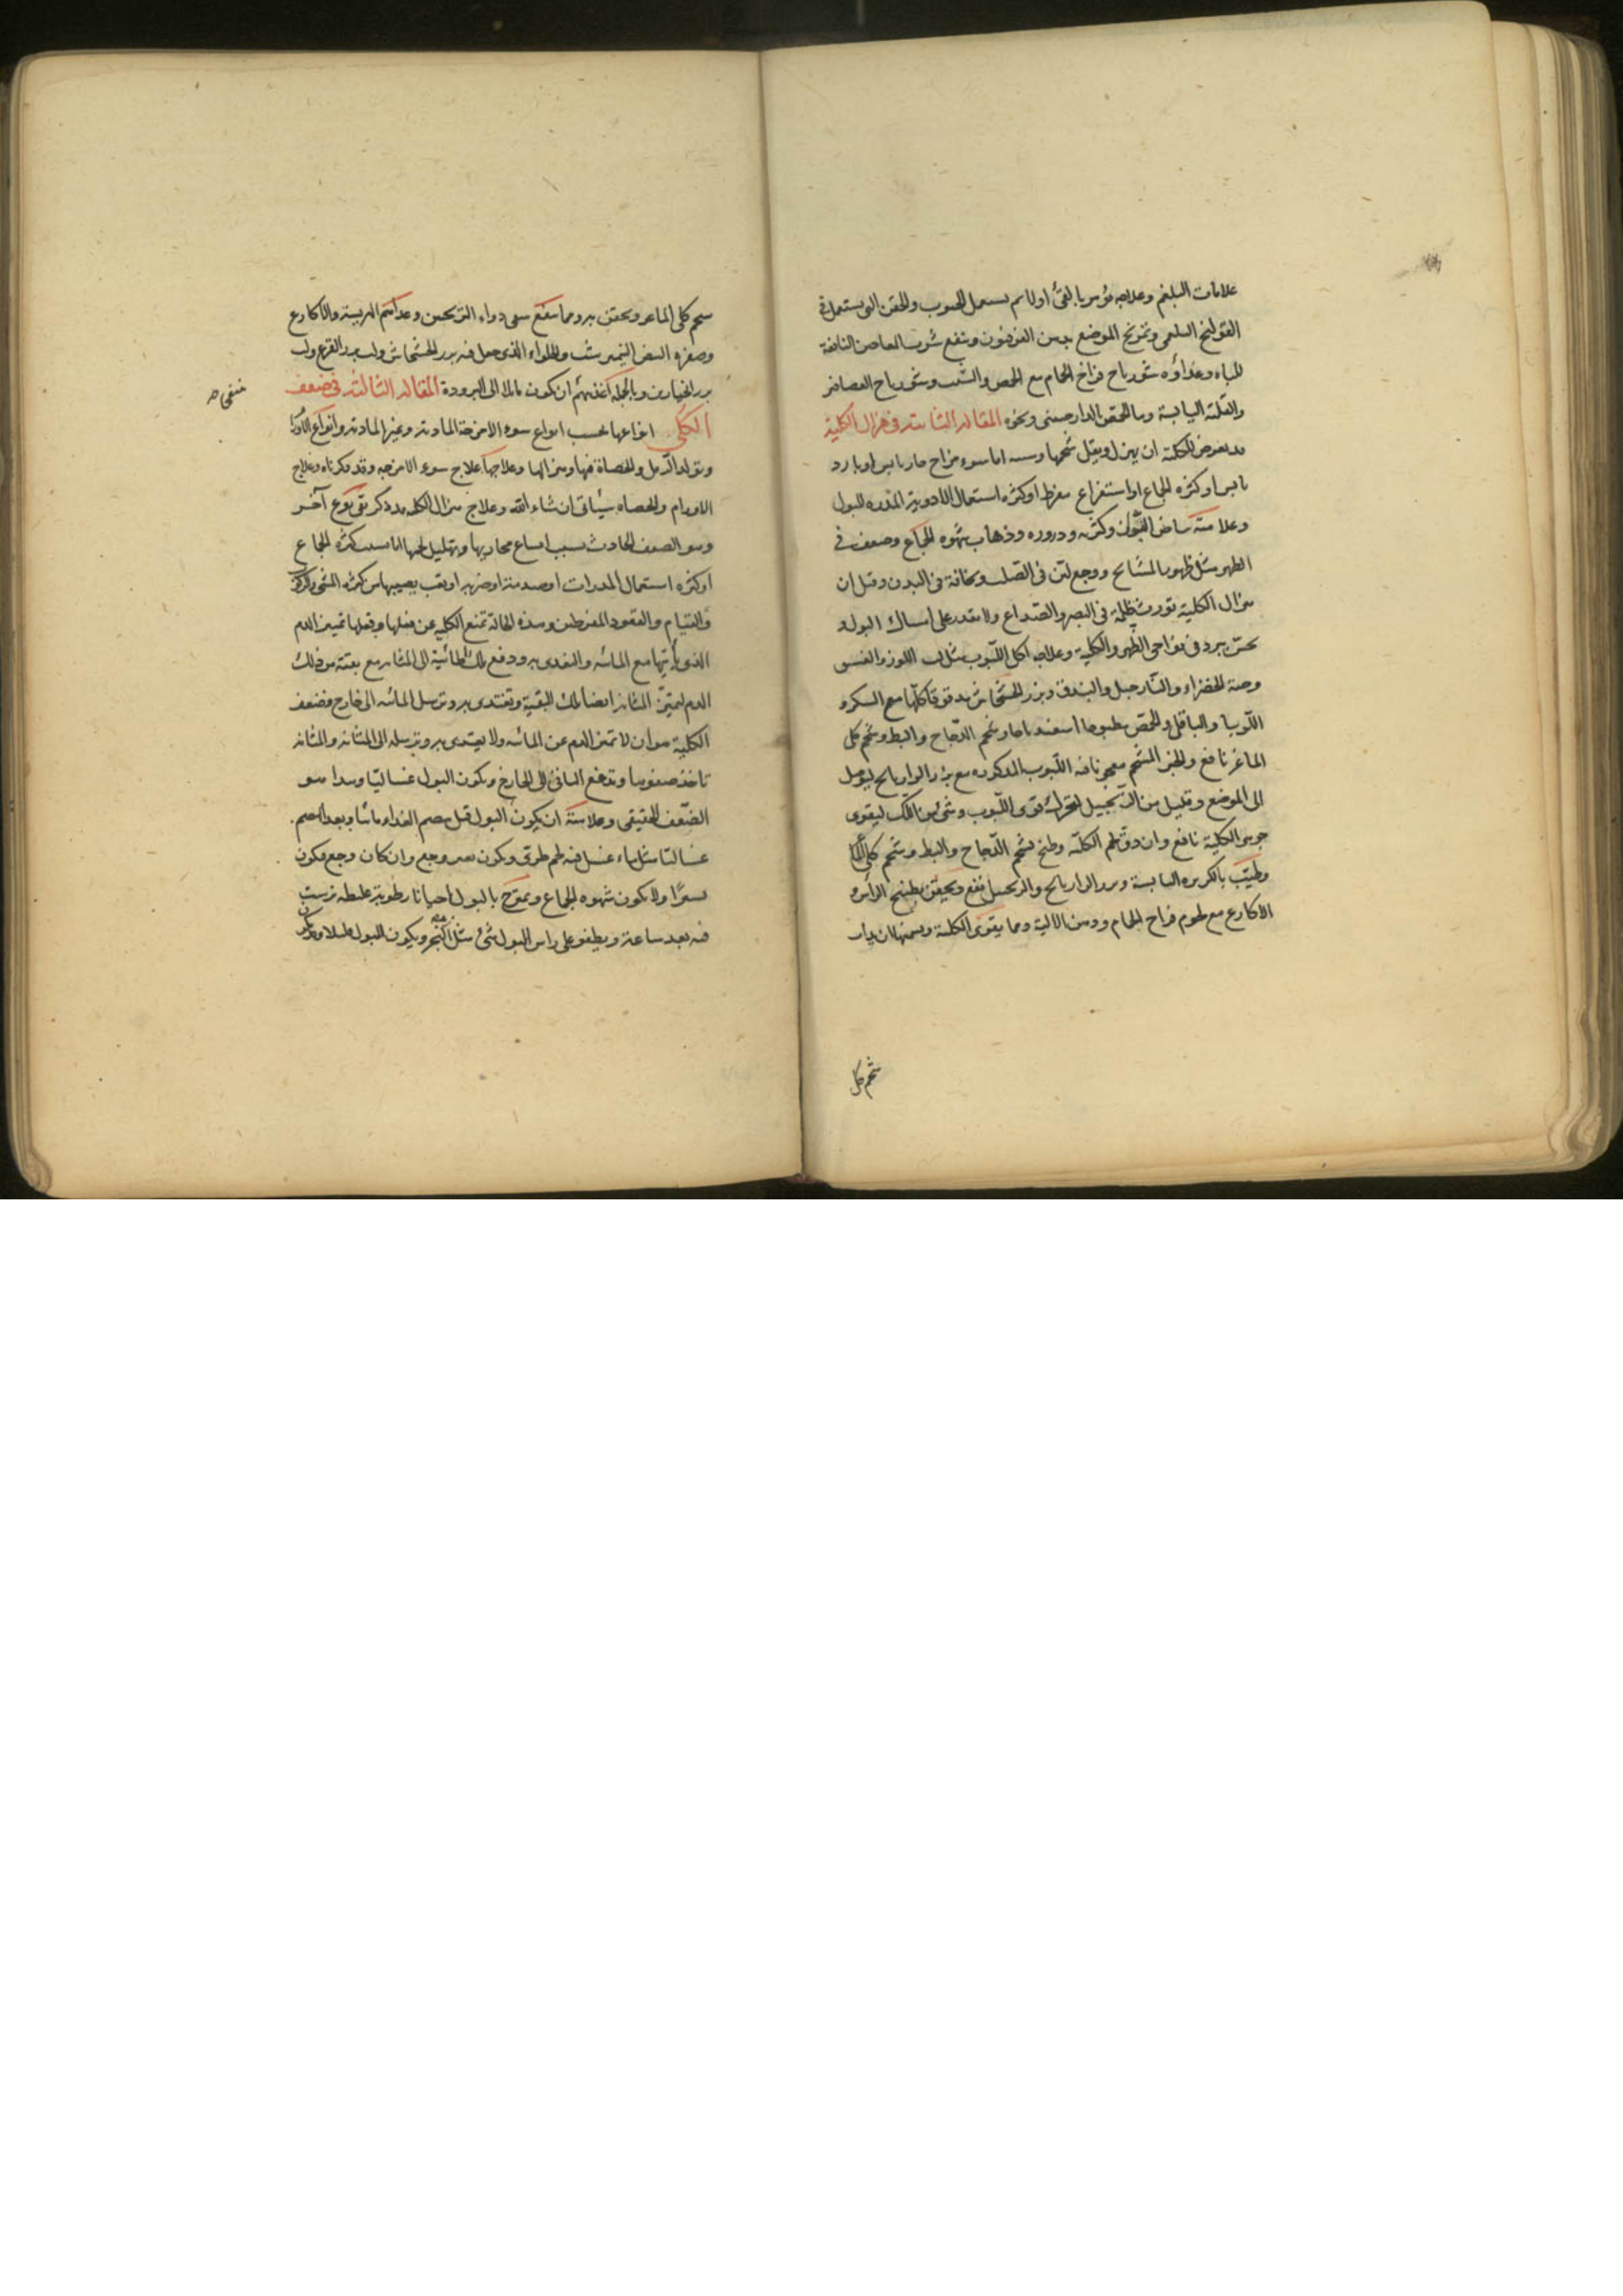 علامات البلغم وعلاجه يؤمر بالقئ اولا ثم يستعمل الحبوب والحقن التى يستعمل فى
القولنج البلغمى وتمريخ الموضع بدهن الفرفيون وينفع شرب المعاجين النافعة
للباه وغذاؤه شورباج فراخ الحمام مع الحمص والشبت وشورباج العصافر
والقليه اليابسة وماء الحمص بالدارصينى ونحوه المقالة الثانيه فى هزال الكلية
قد يعرض للكلية ان يهزل ويقل شحمها وسببه اما سوء مزاج حار يابس او بارد
يابس او كثره الجماع او استفراغ مفرط او كثره استعمال الادوية المدره للبول
وعلامته بياض البول وكثرته ودروره وذهاب شهوه الجماع وضعف فى
الظهر مثل ظهور المشايخ ووجع لين فى الصلب ونحافة فى البدن وقيل ان
هزال الكلية تورث ظلمة فى البصر والصداع ولا يقدر على امساك البول و
يحس ببرد فى نواحى الظهر والكلية وعلاجه اكل اللبوب مثل لب اللوز والفستق
وحبة الخضراء والنارجيل والبندق وبزر الخشخاش مدقوقا كلها مع السكر و
اللوبيا والباقلى والحمص مطبوخا اسفيدباجا وشحم الدجاج والبط وشحم كلى
الماعز نافع والخبز المشحم معجونا فيه اللبوب المذكوره مع بزر الرازيانج ليوصل
الى الموضع وقليل من الزنجبيل ليحرك قوى اللبوب وشئ من اللك ليقوى
جوهر الكلية نافع وان دق لحم الكلية وطبخ بشحم الدجاج والبط وشحم كلى الماعز
وطيب بالكزبره اليابسة وبزر الرازيانج والزنجبيل نفع ويحقن بطبيخ الراس و
الاكارع مع لحوم فراخ الحمام ودهن الالية ومما يقوى الكلية ويسمنها لان يذاب
شحم كلى
شحم كلى الماعز ويحقن به ومما ينفع سقى دواء الترنجبين وغذائهم الهريسه والاكارع
وصفره البيض النيمبرشت والحلواء الذى جعل فيه بزر الخشخاش ولب بزر القرع ولب
بزر الخيارين وبالجملة اغذيتهم ان يكون مائلا الى البرودة المقالة الثالثة فى ضعف
الكلى انواعها بحسب انواع سوء الامزجة الماديه وغير الماديه وانواع الاورام
وتولد الرمل والحصاة فيها وهزالها وعلاجها علاج سوء الامزجه وقد ذكرناه وعلاج
الاورام والحصاه سيأتى ان شاء الله وعلاج هزال الكلية قد ذكر بقى نوع آخر
وهو الضعف الحادث بسبب اتساع مجاريها وتهليل لحمها اما بسبب كثره الجماع
او كثره استعمال المدرات او صدمة او ضربه او تعب يصيبها من كثره المشى والركوب
والقيام والقعود المفرطين وهذه الحالة تمنع الكلية عن فعلها وفعلها تميز الدم
الذى يأتيها مع المائيه والتغذى به ودفع تلك المائية الى المثانه مع بقية من ذلك
الدم ليتميز المثانه ايضا تلك البقية وتغتذى به وترسل المائيه الى الخارج فضعف
الكلية هو ان لا تميز الدم عن المائيه ولا يغتذى به وترسله الى المثانه والمثانه
تاخذ صفوها وتدفع الباقى الى الخارج ويكون البول غساليا وهذا هو
الضعف الحقيقى وعلامته ان يكون البول قبل هضم الغذاء مائيا وبعد الهضم
غساليا مثل ماء غسل فيه لحم طرى ويكون بغير وجع وان كان وجع فيكون
يسيرا ولا يكون شهوه الجماع ويخرج بالبول احيانا رطوبة غليظه ترسب
فيه بعد ساعة ويطفو على راس البول شئ مثل الزبد ويكون البول قليلا ويكون